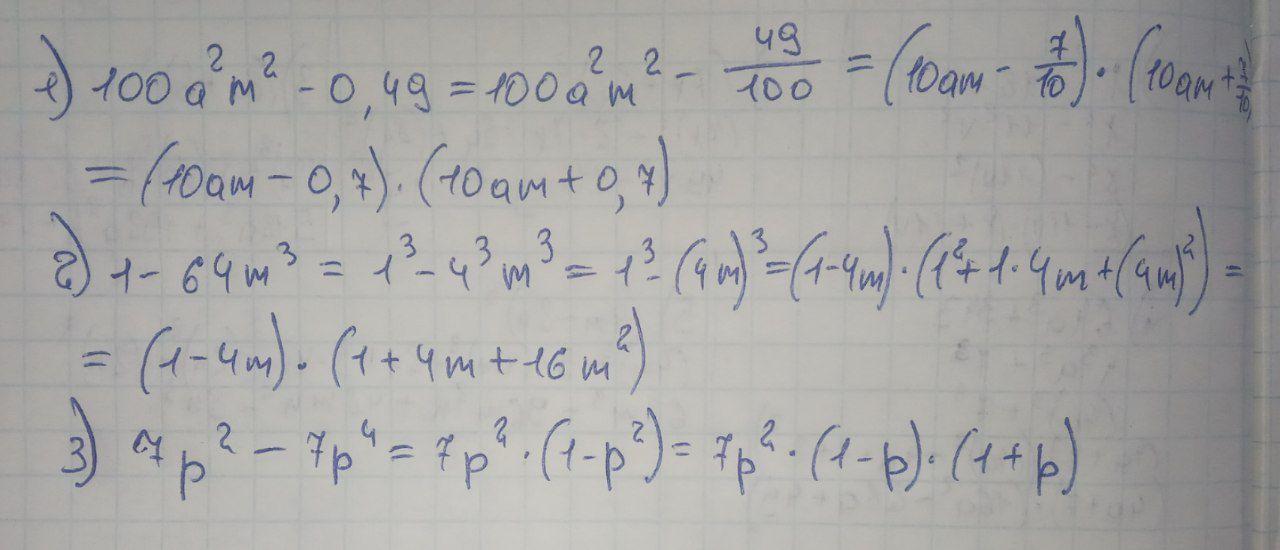 1) 100a²m² - 0,49 = 100a²m² - 49/100 = (10am - 7/10) · (10am + 7/10)
= (10am - 0,7) · (10am + 0,7)
2) 1 - 64m³ = 1³ - 4³m³ = 1³ - (4m)³ = (1-4m) · (1² + 1 · 4m + (4m)²) =
= (1-4m) · (1 + 4m + 16m²)
3) 7p² - 7p⁴ = 7p² · (1-p²) = 7p² · (1-p) · (1+p)